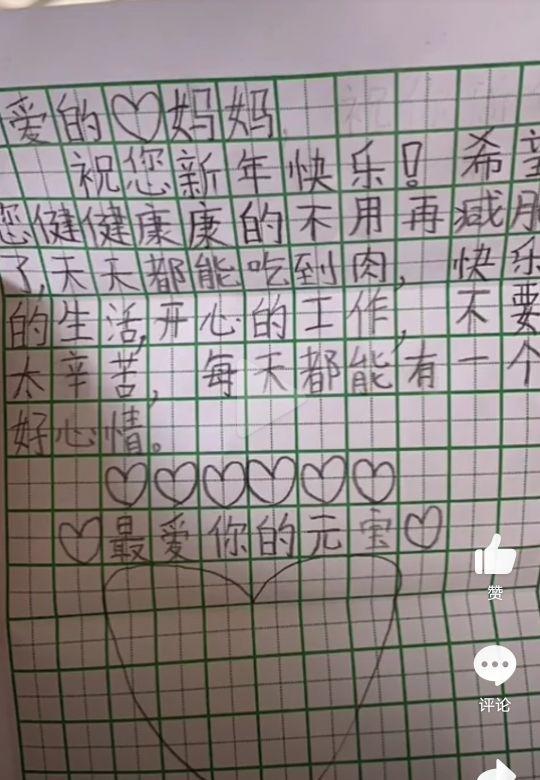 爱的♡妈妈
祝您新年快乐!希望
您健健康康的不用再减肥
了,天天都能吃到肉,快乐
的生活,开心的工作,不要
太辛苦,每天都能有一个
好心情。
♡♡♡♡♡♡
♡最爱你的元宝♡
赞
评论